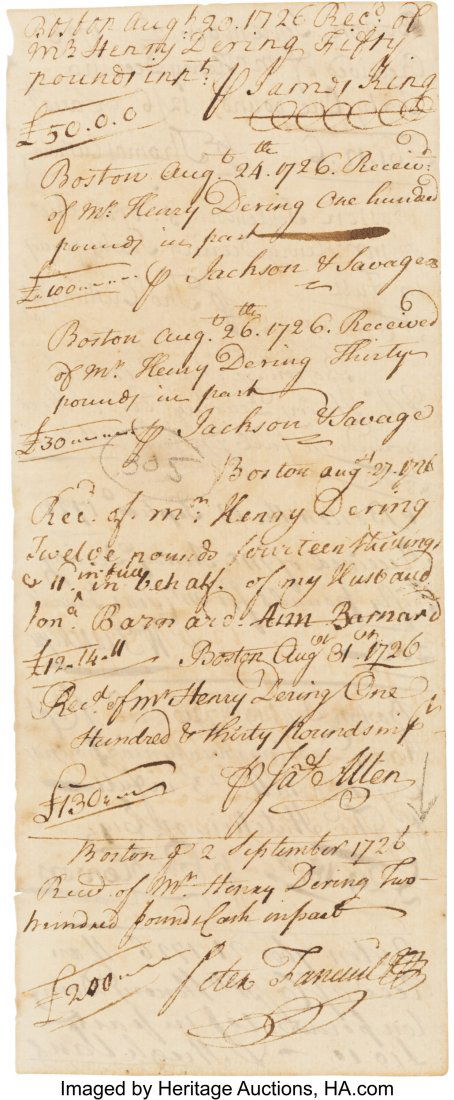 Boston Augt 20. 1726 Recd of
Mr Henry Dering Fifty
pounds in pt
₽ James King
£50.0.0
Boston Augt 24th. 1726. Receivd
of Mr. Henry Dering One hundred
pounds in part
£100
₽ Jackson & Savage
Boston Augt 26th. 1726. Received
of Mr. Henry Dering Thirty
pounds in part
£30
₽ Jackson & Savage
305
Boston Augst 27. 1726
Recd. of Mr. Henry Dering
Twelve pounds fourteen Shillings
& 11 in full in behalf of my Husband
Jona. Barnard. Ann Barnard
£12-14-11
Boston Augst 31st. 1726
Recd. of Mr Henry Dering One
Hundred & thirty Pounds in p
₽ Jas Allen
£130
Boston 2 September 1726
Recd of Mr. Henry Dering Two
hundred pounds Cash in part
£200
Peter Faneuil
Imaged by Heritage Auctions, HA.com